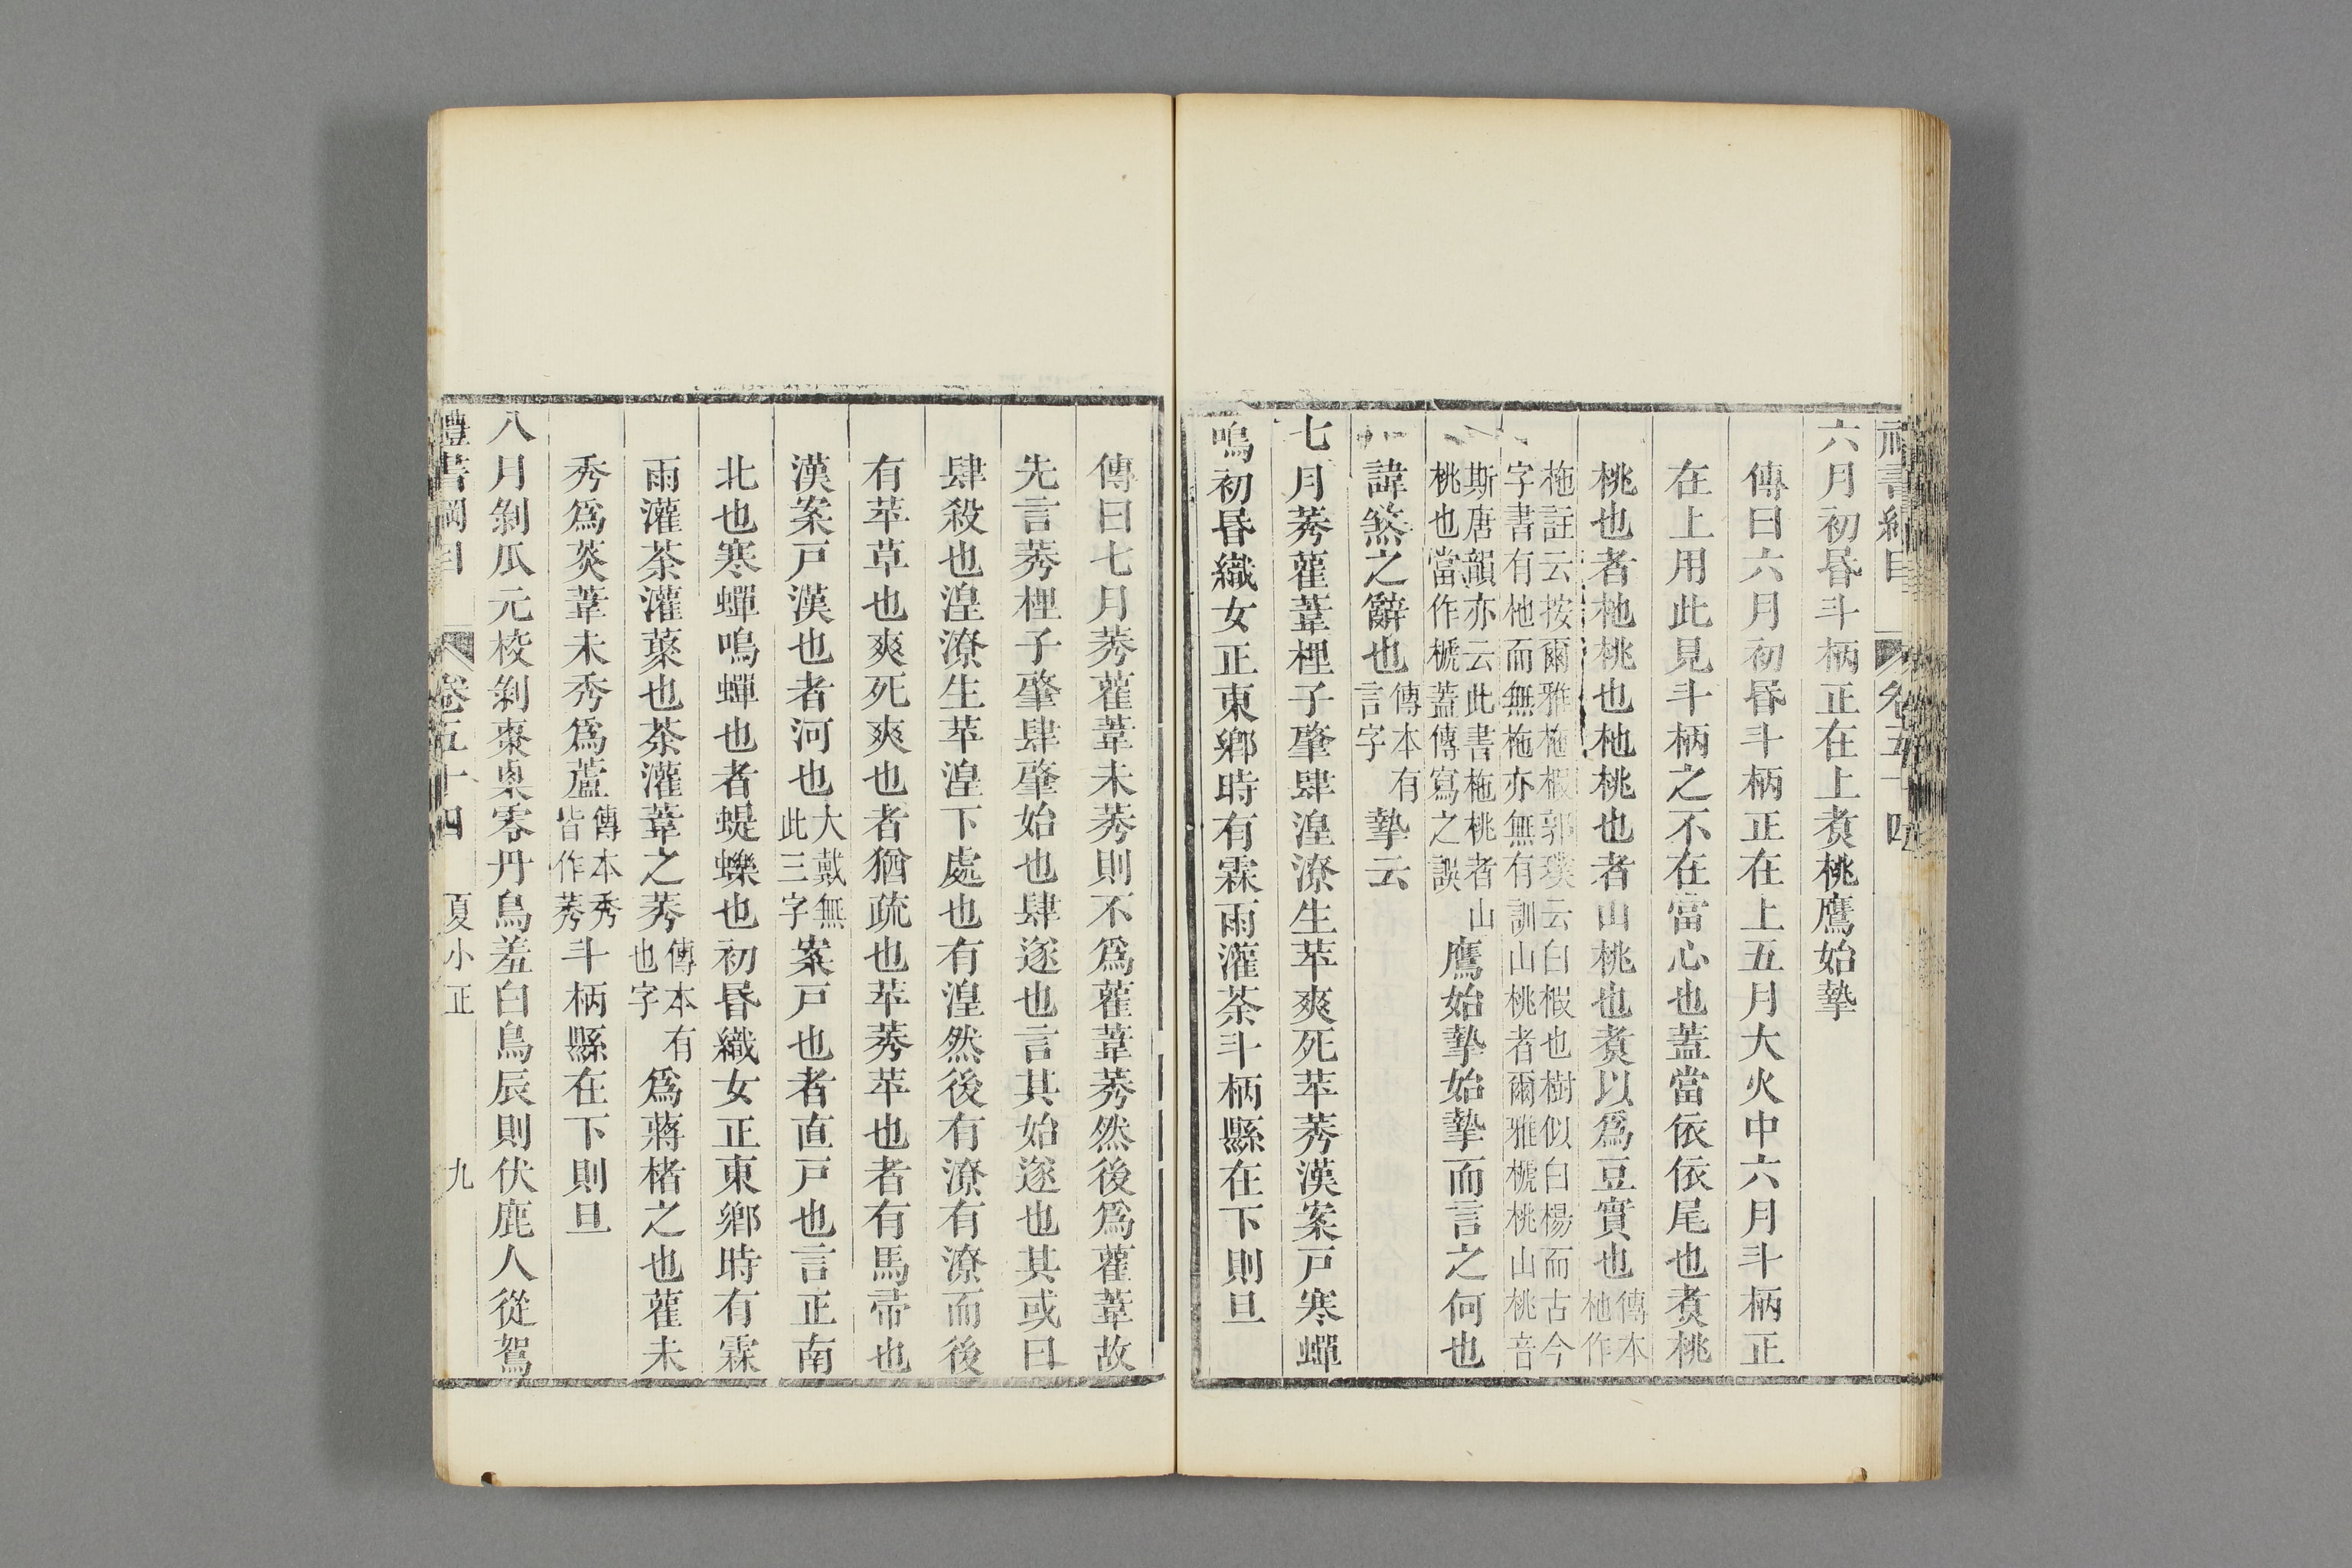 六月初昏斗柄正在上煑桃鷹始摯
傳曰六月初昏斗柄正在上五月大火中六月斗柄正
在上用此見斗柄之不在當心也蓋當依依尾也煑桃
桃也者杝桃也杝桃也者山桃也煑以爲豆實也傳本杝作
柂註云按爾雅柂椵郭璞云白椵也樹似白楊而古今
字書有杝而無柂亦無有訓山桃者爾雅榹桃山桃音
斯唐韻亦云此書柂桃者山
桃也當作榹蓋傳寫之誤鷹始摯始摯而言之何也
諱煞之辭也傳本有言字摯云
七月莠雚葦狸子肇肆湟潦生苹爽死苹莠漢案戸寒蟬
鳴初昏織女正東鄉時有霖雨灌荼斗柄縣在下則旦
傳曰七月莠雚葦未莠則不爲雚葦莠然後爲雚葦故
先言莠狸子肇肆肇始也肆遂也言其始遂也其或曰
肆殺也湟潦生苹湟下處也有湟然後有潦有潦而後
有苹草也爽死爽也者猶疏也苹莠苹也者有馬帚也
漢案戸漢也者河也大戴無此三字案戸也者直戸也言正南
北也寒蟬鳴蟬也者蝭蠑也初昏織女正東鄉時有霖
雨灌荼灌蕖也荼灌葦之莠傳本有也字爲蔣楮之也雚未
秀爲菼葦未秀爲蘆傳本秀皆作莠斗柄縣在下則旦
八月剝瓜元校剝棗㮚零丹鳥羞白鳥辰則伏鹿人從鴽
禮書綱目 卷五十四 夏小正 九